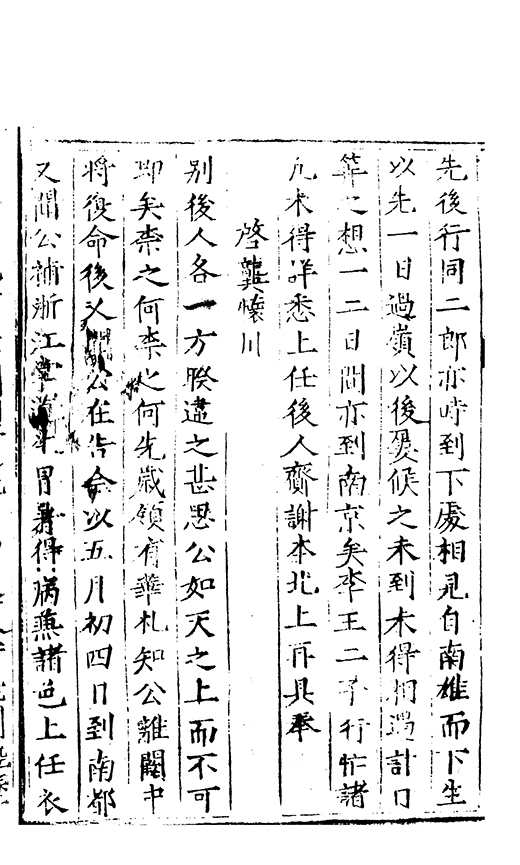 先後行同二郎亦時到下處相見自南雄而下生
以先一日過嶺以後爰候之未到未得相遇計日
筭之想一二日間亦到南京矣李王二子行忙諸
凡未得詳悉上任後人齎謝本北上再具奉
啓龔懷川
別後人各一方暌違之甚思公如天之上而不可
即矣柰之何柰之何先歲領有華札知公離閩中
將復命後又聞公在告余以五月初四日到南都
又聞公補浙江學道冒暑得病兼諸邑上任衣